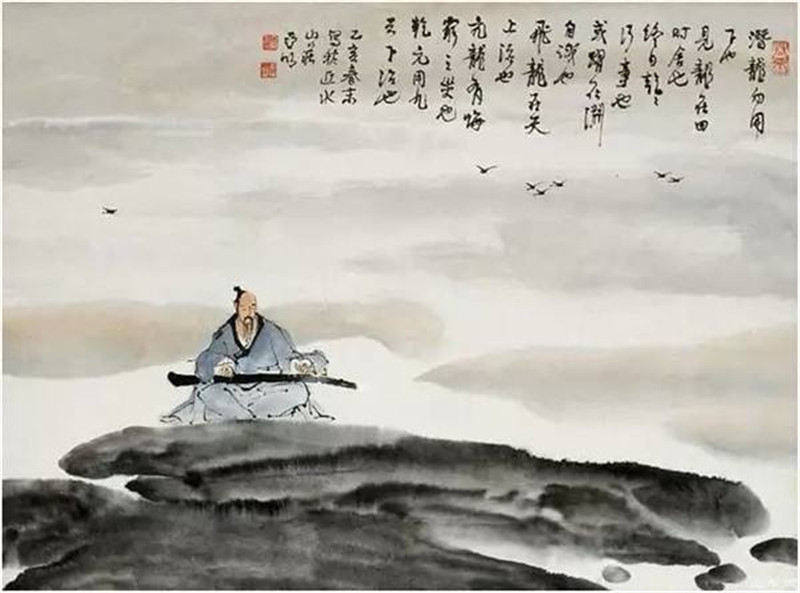 潛龍勿用
下也
見龍在田
时舍也
终日乾〻
行事也
或躍在淵
自識也
飛龍在天
上治也
亢龍有悔
窮之災也
乾元用九
天下治也
乙亥春末
寫於近水
山莊
亞明